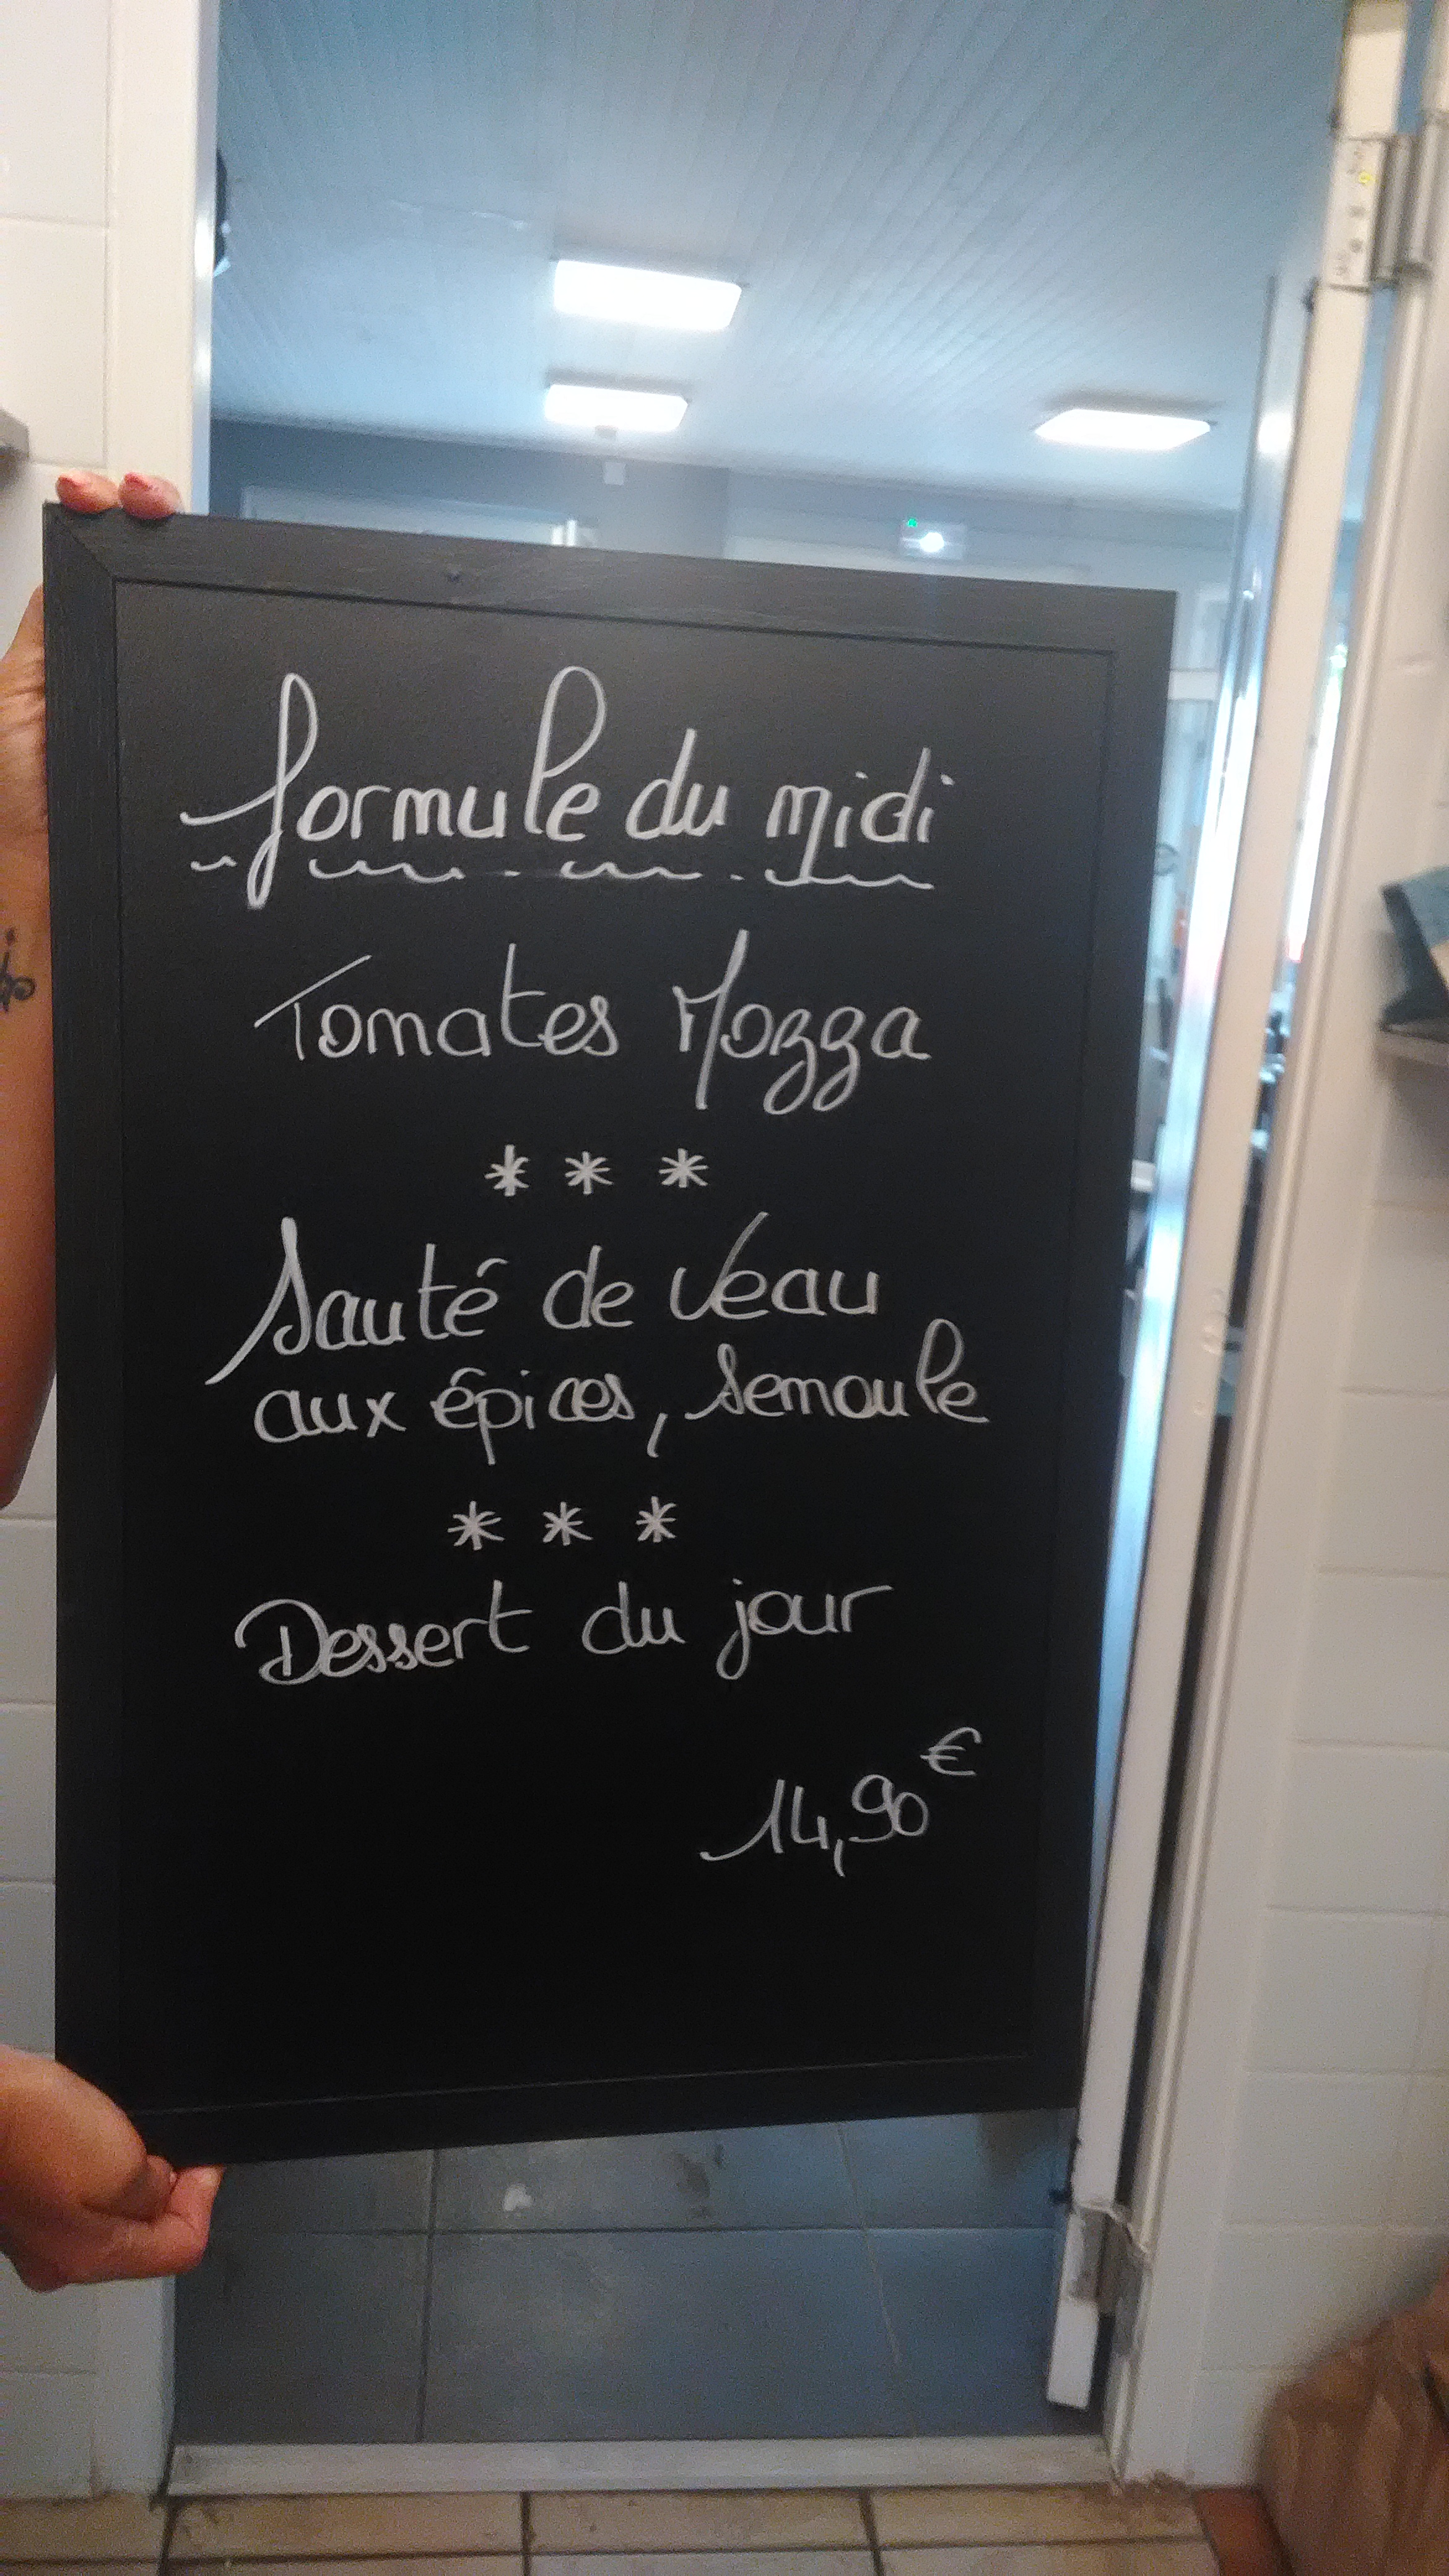 formule du midi
Tomates Mozza
* * *
Sauté de Veau
aux épices, Semoule
* * *
Dessert du jour
14,90€